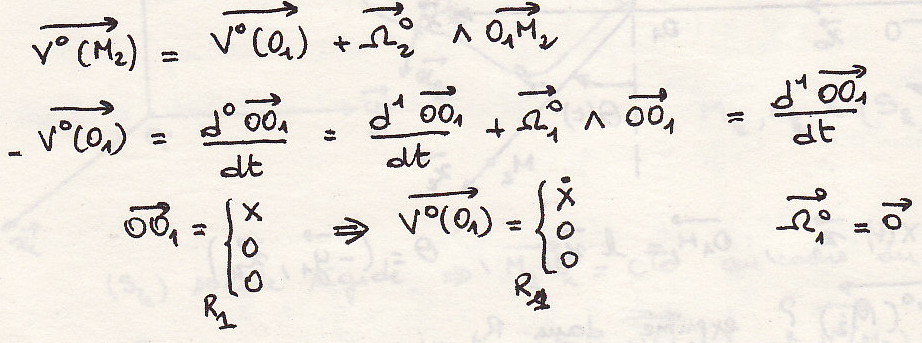 V⁰(M₂) = V⁰(O₁) + Ω₂⁰ ∧ O₁M₂
- V⁰(O₁) = d⁰OO₁/dt = d¹OO₁/dt + Ω₁⁰ ∧ OO₁ = d¹OO₁/dt
OO₁ = { x 0 0 R₁ ⇒ V⁰(O₁) = { ẋ 0 0 R₁ Ω₁⁰ = 0